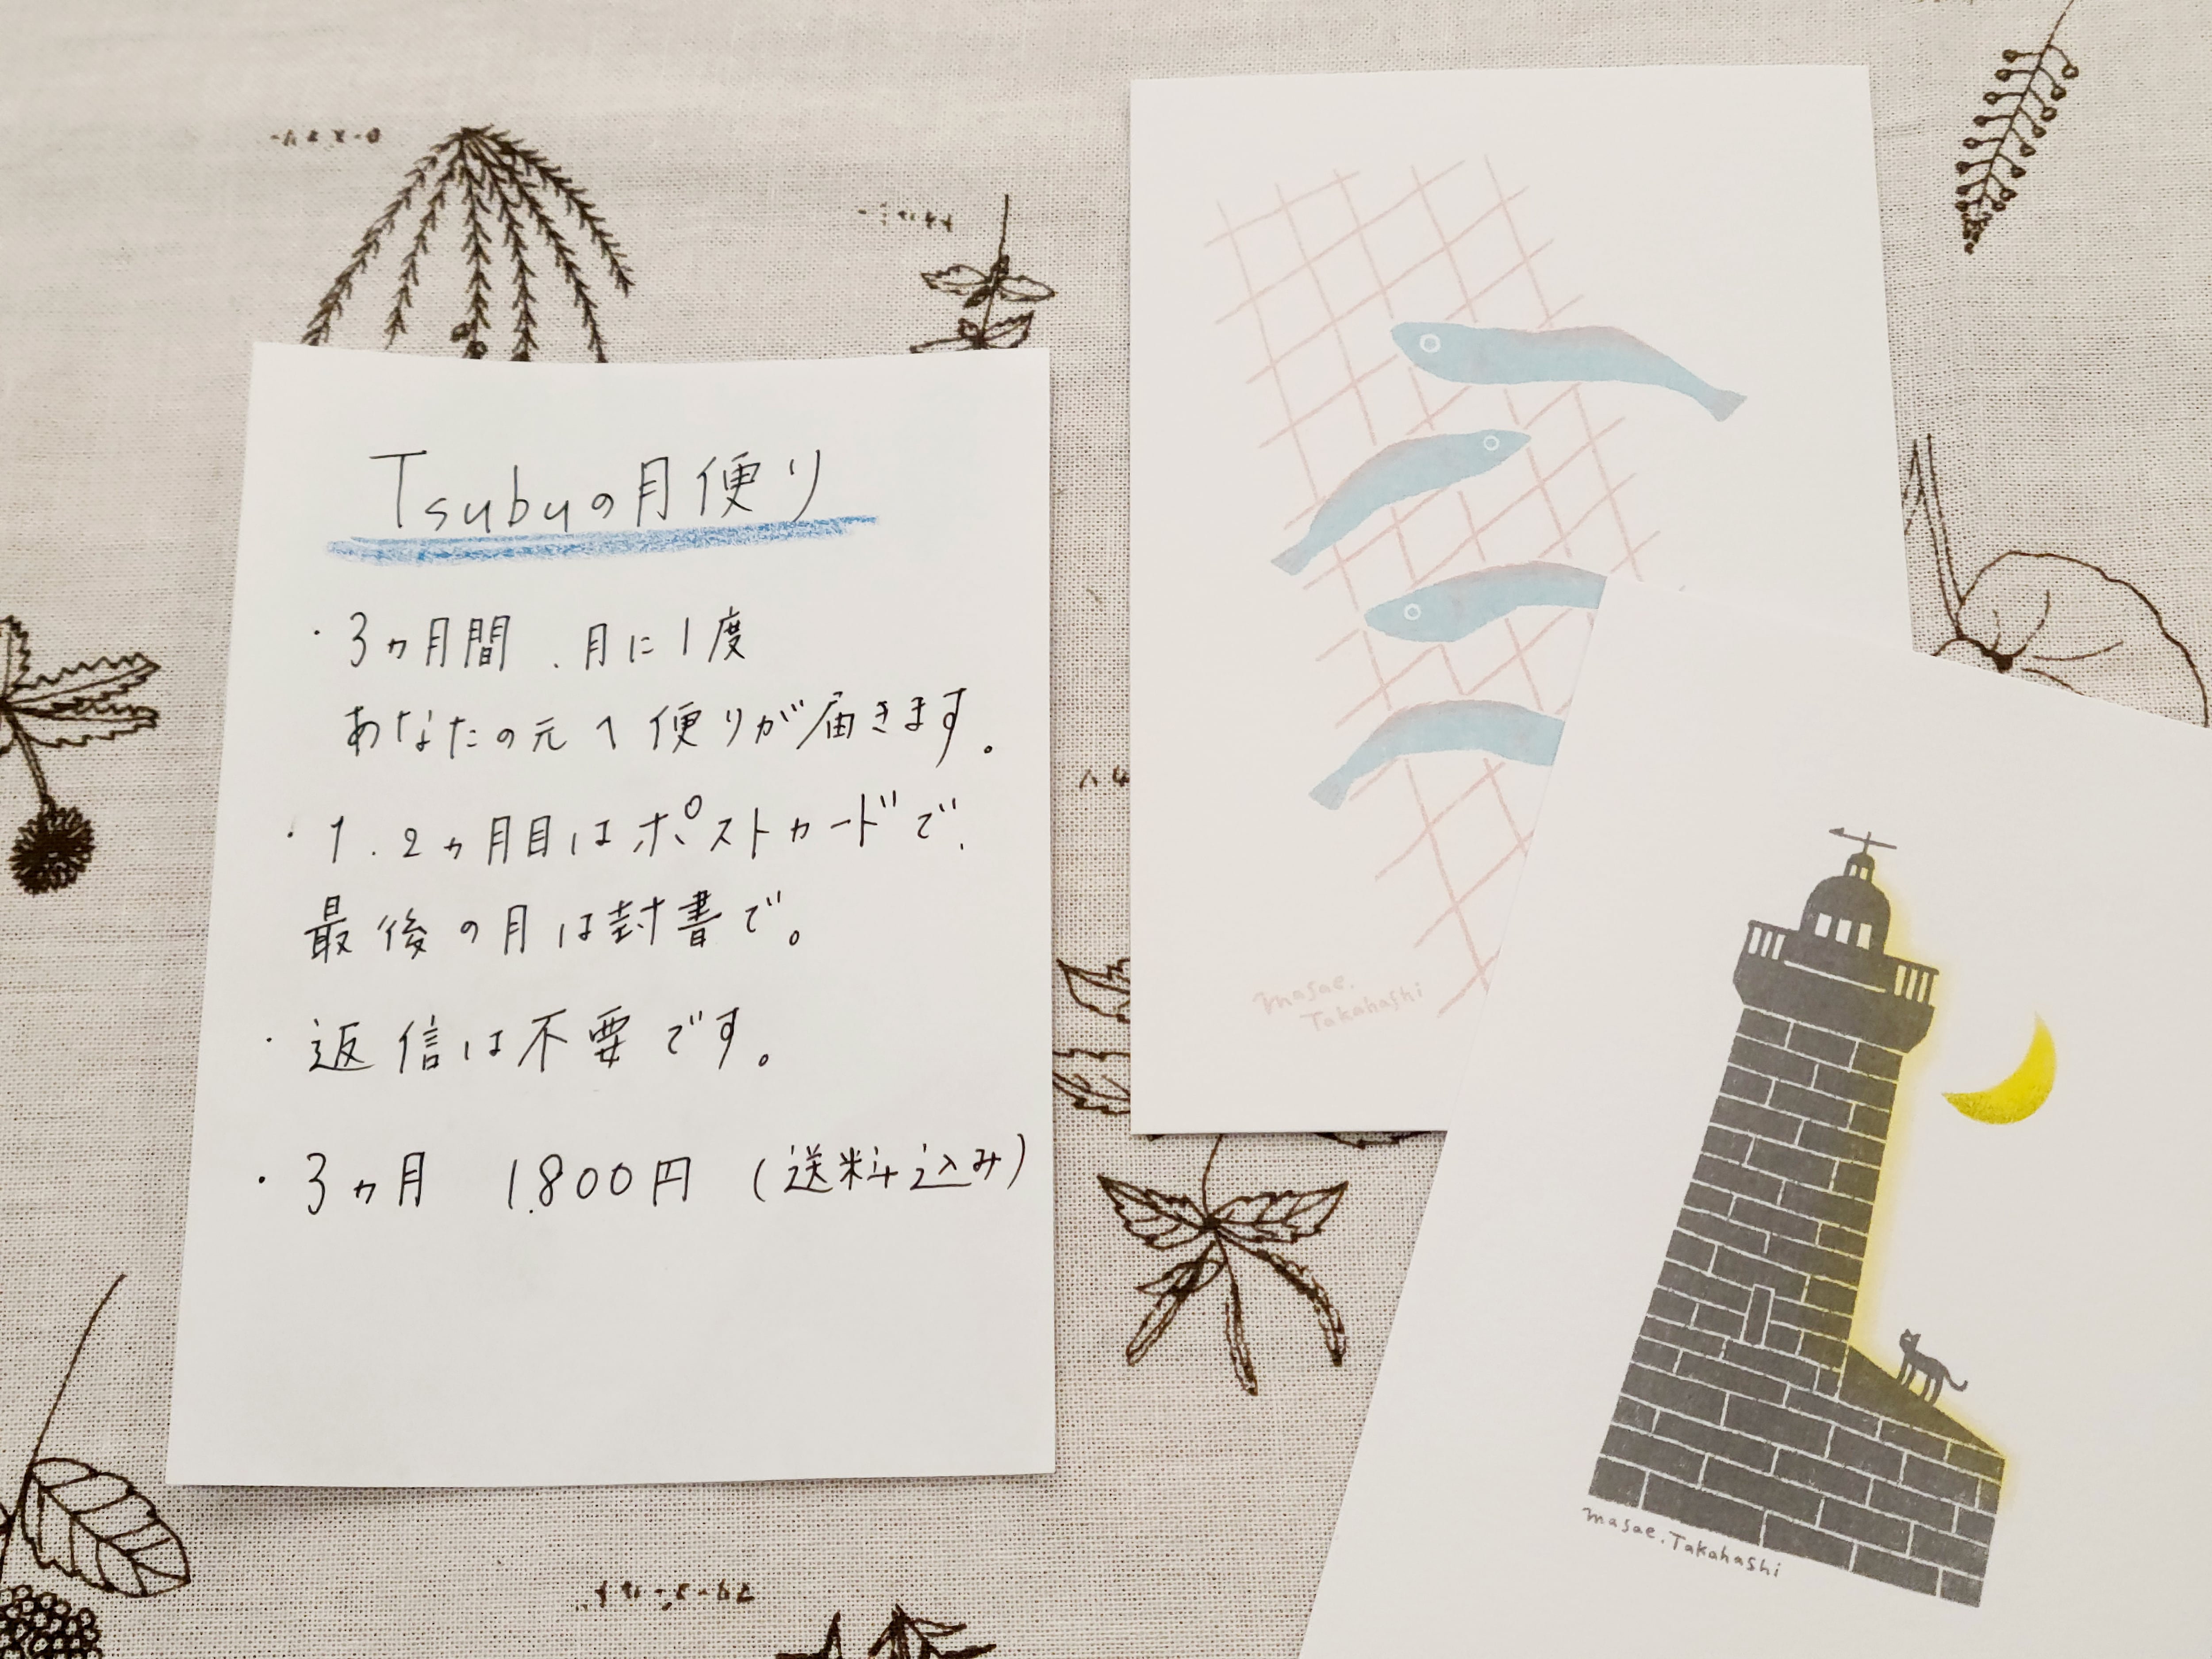 Tsubuの月便り
・3ヵ月間、月に1度
あなたの元へ便りが届きます。
・1、2ヵ月目はポストカードで、
最後の月は封書で。
・返信は不要です。
・3ヵ月 1,800円 (送料込み)
masae.
Takahashi
masae.Takahashi